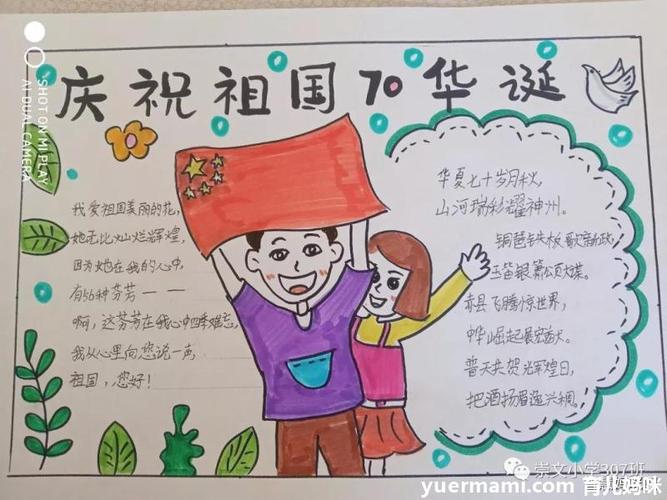 庆祝祖国70华诞
我爱祖国美丽的花,
她无比灿烂辉煌,
因为她在我的心中,
有56种芬芳——
啊,这芬芳在我心中四季难忘,
我从心里向您说一声,
祖国,您好!
华夏七十岁月秋,
山河瑞彩耀神州。
铜琶铁板歌新政,
玉笛银箫颂大谋。
赤县飞腾惊世界,
中华崛起展宏猷。
普天共贺辉煌日,
把酒扬眉逸兴稠。
SHOT ON MI PLAY
AI DUAL CAMERA
崇文小学307班
yuermami.com 育儿妈咪